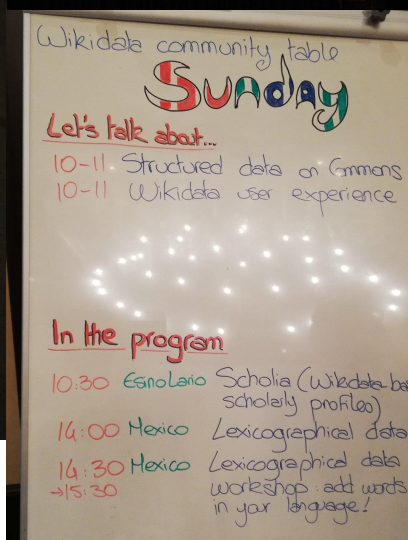 Wikidata community table
Sunday
Let's talk about...
10-11 Structured data on Commons
10-11 Wikidata user experience
In the program
10:30 EsinoLario Scholia (Wikidata-ba
scholarly profiles)
14:00 Mexico Lexicographical data
14:30 Mexico Lexicographical data
→15:30 workshop: add words
in your language!